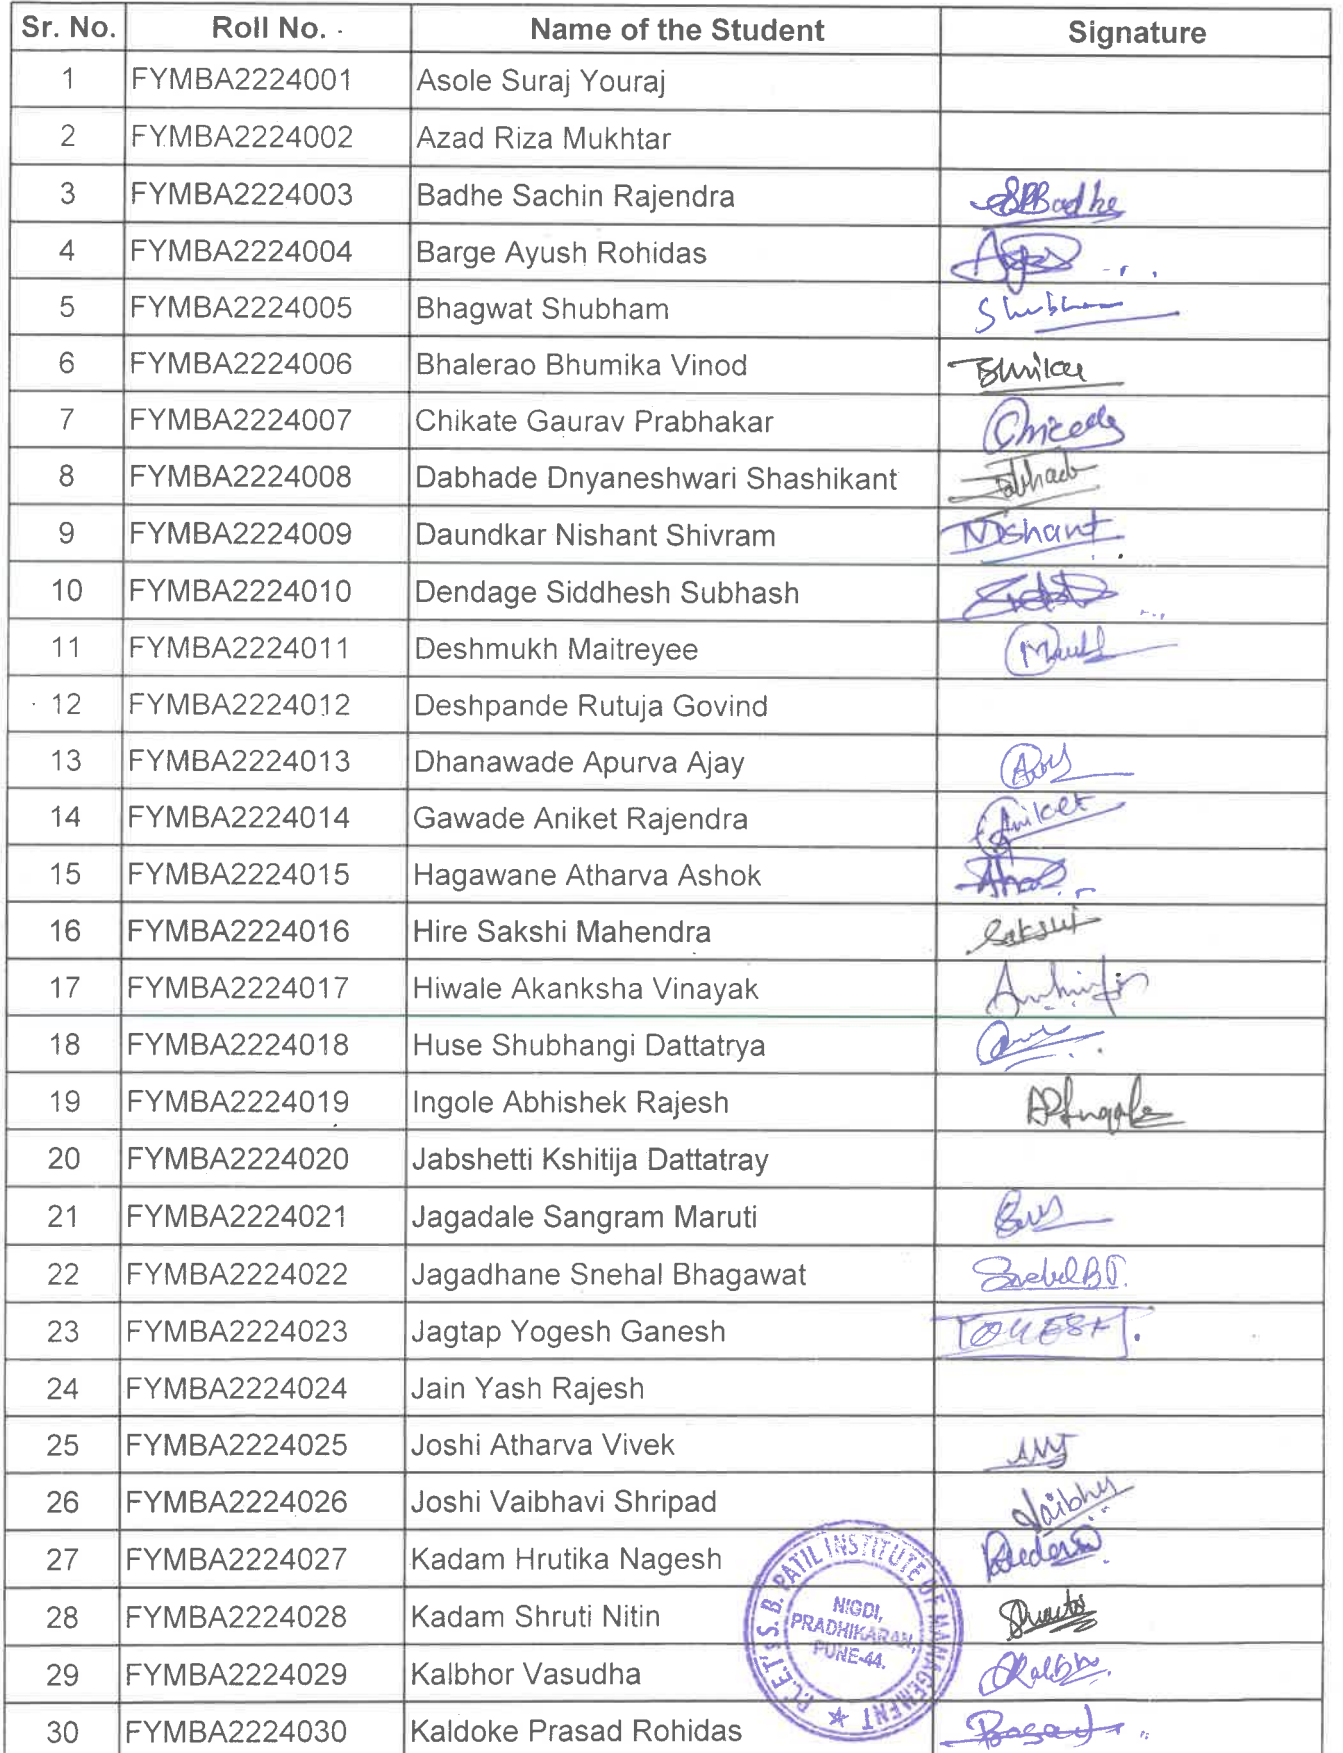 Sr. No. Roll No. Name of the Student Signature
1 FYMBA2224001 Asole Suraj Youraj
2 FYMBA2224002 Azad Riza Mukhtar
3 FYMBA2224003 Badhe Sachin Rajendra SRBadhe
4 FYMBA2224004 Barge Ayush Rohidas
5 FYMBA2224005 Bhagwat Shubham Shubham
6 FYMBA2224006 Bhalerao Bhumika Vinod
7 FYMBA2224007 Chikate Gaurav Prabhakar
8 FYMBA2224008 Dabhade Dnyaneshwari Shashikant
9 FYMBA2224009 Daundkar Nishant Shivram Nishant
10 FYMBA2224010 Dendage Siddhesh Subhash
11 FYMBA2224011 Deshmukh Maitreyee
12 FYMBA2224012 Deshpande Rutuja Govind
13 FYMBA2224013 Dhanawade Apurva Ajay
14 FYMBA2224014 Gawade Aniket Rajendra Aniket
15 FYMBA2224015 Hagawane Atharva Ashok
16 FYMBA2224016 Hire Sakshi Mahendra Sakshi
17 FYMBA2224017 Hiwale Akanksha Vinayak
18 FYMBA2224018 Huse Shubhangi Dattatrya
19 FYMBA2224019 Ingole Abhishek Rajesh
20 FYMBA2224020 Jabshetti Kshitija Dattatray
21 FYMBA2224021 Jagadale Sangram Maruti
22 FYMBA2224022 Jagadhane Snehal Bhagawat SnehalBJ.
23 FYMBA2224023 Jagtap Yogesh Ganesh YOGESH J.
24 FYMBA2224024 Jain Yash Rajesh
25 FYMBA2224025 Joshi Atharva Vivek AVJ
26 FYMBA2224026 Joshi Vaibhavi Shripad
27 FYMBA2224027 Kadam Hrutika Nagesh
28 FYMBA2224028 Kadam Shruti Nitin
29 FYMBA2224029 Kalbhor Vasudha
30 FYMBA2224030 Kaldoke Prasad Rohidas
P.C.E.T's S. B. PATIL INSTITUTE OF MANAGEMENT
NIGDI,
PRADHIKARAN,
PUNE-44.